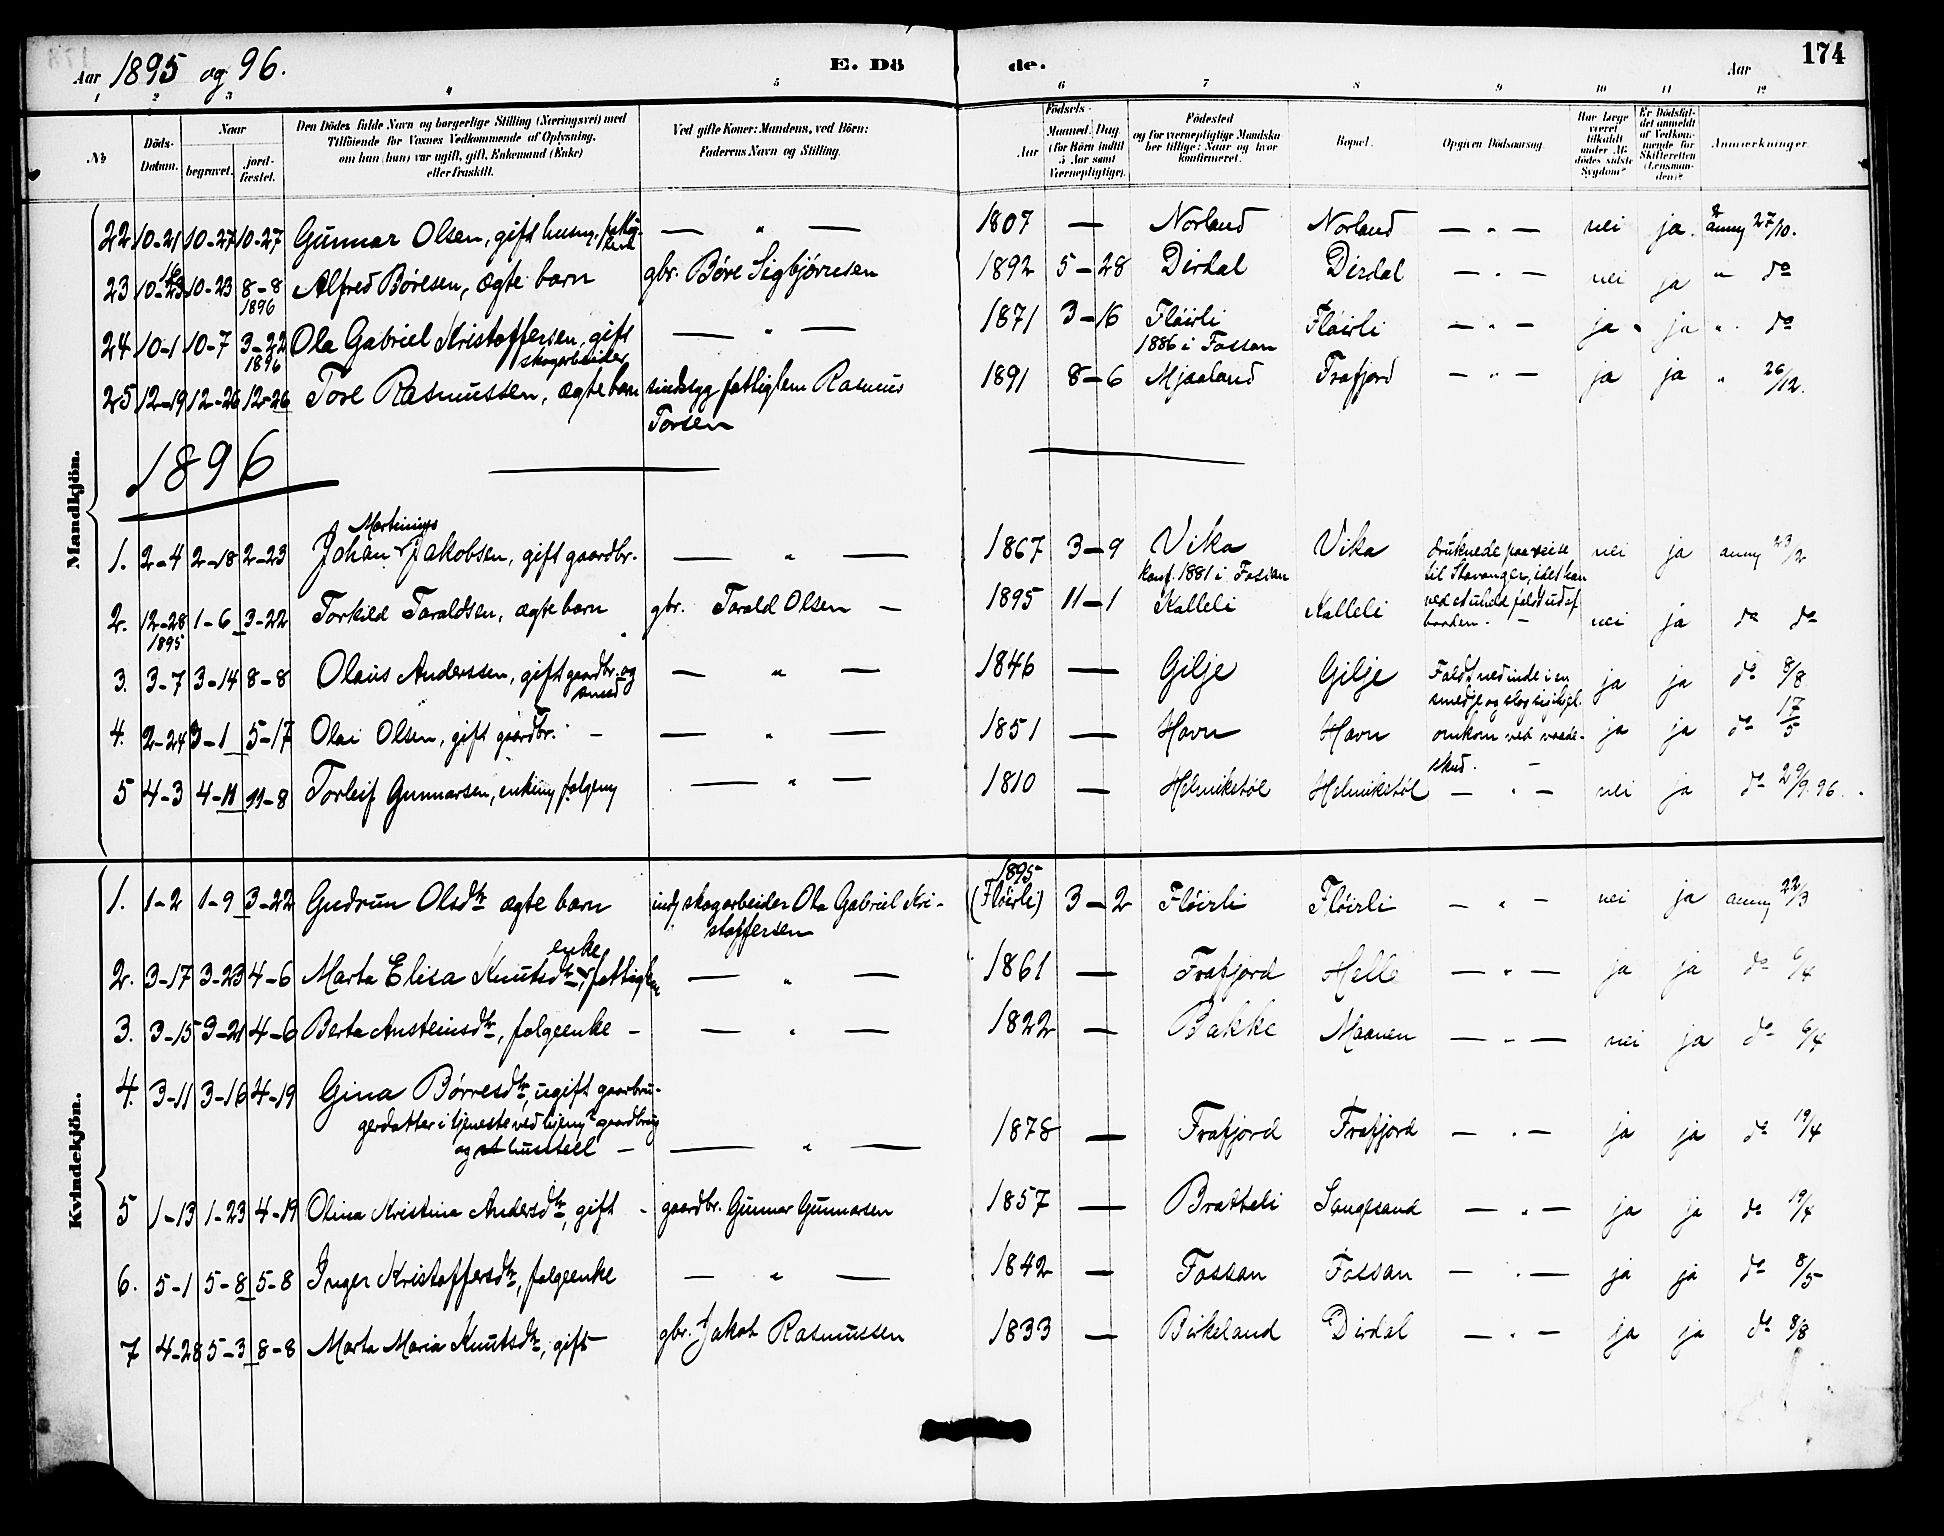 Aar 1895 og 96.
E. Dö de.
Aar
174
1 2 3 4 5 6 7 8 9 10 11 12
No
Döds-Datum.
Naar begravet. jordfæstet.
Den Dödes fulde Navn og borgerlige Stilling (Næringsvei) med
Tilföiende for Voxnes Vedkommende af Oplysning,
om han (hun) var ugift, gift, Enkemand (Enke)
eller fraskilt.
Ved gifte Koner: Mandens, ved Börn:
Faderens Navn og Stilling.
Födsels-
Aar Maaned. Dag
(for Börn indtil 5 Aar samt Værnepligtige).
Födested
og for værnepligtige Mandskaber tillige: Naar og hvor konfirmeret.
Bopæl.
Opgiven Dödsaarsag.
Har Læge været tilkaldt under Afdödes sidste Sygdom?
Er Dödsfaldet anmeldt af Vedkommende for Skifteretten (Lensmanden)?
Anmærkninger.
Mandkjön.
22 10-21 10-27 10-27 Gunnar Olsen, gift husm., — " — 1807 — Norland Norland — " — nei ja anmg 27/10.
23 10-23 8-8 1896 Alfred Børesen, ægte barn gbr. Børe Sigbjørnsen 1892 5-28 Dirdal Dirdal — " — nei ja " do
24 10-1 10-7 3-22 1896 Ola Gabriel Kristoffersen, gift skogarbeider — " — 1871 3-16 Fløirli 1886 i Fossan Fløirli — " — ja ja " do
25 12-19 12-26 12-26 Tore Rasmussen, ægte barn sindssyg fattiglem Rasmus Torsen 1891 8-6 Mjaaland Frafjord — " — ja ja " 26/12.
1896
1. 2-4 2-18 2-23 Johan Martinius Jakobsen, gift gaardbr. — " — 1867 3-9 Vika konf. 1881 i Fossan Vika druknede paa reise til Stavanger, idet han ved et uheld faldt ud af baaden. — nei ja anmg 23/2
2. 12-28 1895 1-6 3-22 Torkild Taraldsen, ægte barn gbr. Tarald Olsen — 1895 11-1 Kalleli Kalleli nei ja do do
3. 3-7 3-14 8-8 Olaus Anderssen, gift gaardbr. og smed — " — 1846 — Gilje Gilje Faldt ned inde i en smedje og slog sig ihjel. ja ja do 8/8
4. 2-24 3-1 5-17 Olai Olsen, gift gaardbr. — — " — 1851 — Havn Havn omkom ved vaade-skud. — ja ja do 17/5
5 4-3 4-11 11-8 Torleif Gunnarsen, enkem. folgem. — " — 1810 — Helmikstøl Helmikstøl — " — nei ja do 29/9. 96.
Kvindekjön.
1. 1-2 1-9 3-22 Gudrun Olsdtr ægte barn indj. skogarbeider Ola Gabriel Kristoffersen 1895 (Fløirli) 3-2 Fløirli Fløirli — " — nei ja anmg 22/3
2. 3-17 3-23 4-6 Marta Elisa Knutsdtr, enke fattiglem — " — 1861 — Frafjord Helle — " — ja ja do 6/4
3. 3-15 3-21 4-6 Berta Austeinsdtr, folgeenke — — " — 1822 — Bakke Maanen — " — nei ja do 6/4
4. 3-11 3-16 4-19 Gina Børresdtr, ugift gaardbru-
gerdatter i tjeneste ved hjemts gaardbrug
og husstell — — " — 1878 — Frafjord Frafjord — " — ja ja do 19/4
5 1-13 1-23 4-19 Olina Kristina Andersdtr, gift — gaardbr. Gunnar Gunnarsen 1857 — Bratteli Sangesand — " — ja ja do 19/4
6. 5-1 5-8 5-8 Inger Kristoffersdtr, folgeenke — " — 1842 — Fossan Fossan — " — ja ja do 8/5
7 4-28 5-3 8-8 Marta Maria Knutsdtr, gift gbr. Jakob Rasmussen 1833 — Birkeland Dirdal — " — ja ja do 8/8